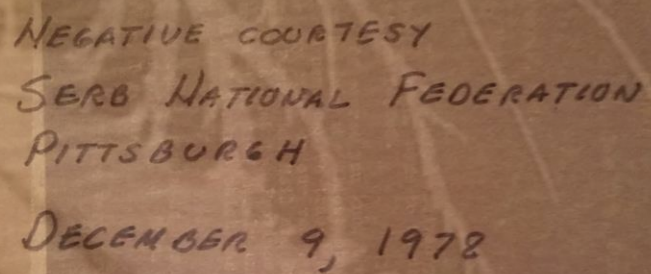 NEGATIVE COURTESY
SERB NATIONAL FEDERATION
PITTSBURGH
DECEMBER 9, 1978